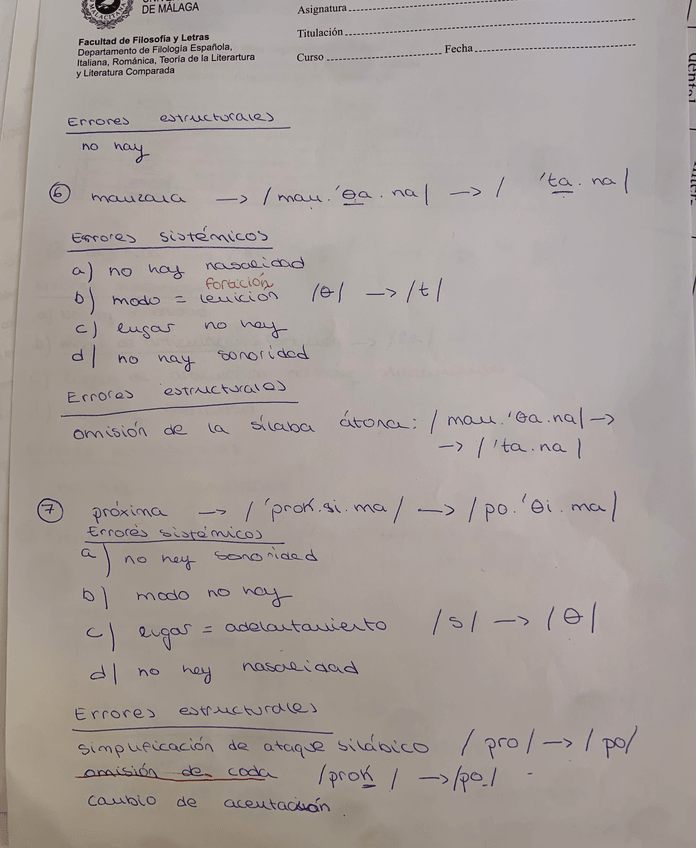 DE MÁLAGA
Facultad de Filosofía y Letras
Departamento de Filología Española,
Italiana, Románica, Teoría de la Literartura
y Literatura Comparada
Asignatura
Titulación
Curso Fecha
Errores estructurales
no hay
6 manzana —> /man.'θa.na/ —> / 'ta.na/
Errores sistémicos
a) no hay nasalidad
fortición
b) modo = lenición /θ/ —> /t/
c) lugar no hay
d) no hay sonoridad
Errores estructurales
omisión de la sílaba átona: /man.'θa.na/ —>
—> /'ta.na/
7 próxima —> /'prok.si.ma/ —> /po.'θi.ma/
Errores sistémicos
a) no hay sonoridad
b) modo no hay
c) lugar = adelantamiento /s/ —> /θ/
d) no hay nasalidad
Errores estructurales
simplificación de ataque silábico /pro/ —> /po/
omisión de coda /prok/ —> /po_/
cambio de acentuación